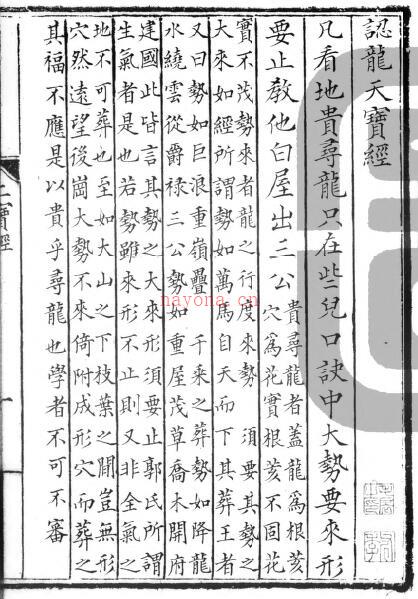 認龍天寶經
凡看地貴尋龍只在些兒口訣中大勢要來形
要止教他白屋出三公
貴尋龍者蓋龍爲根荄
穴爲花實根荄不同花
實不茂勢來者龍之行度來勢須要其勢之
大來如經所謂勢如萬馬自天而下其葬王者
又曰勢如巨浪重嶺疊 千乗之葬勢如降龍
水繞雲從爵祿三公勢如重屋茂草喬木開府
建國此皆言其勢之大來形須要止郭氏所謂
生氣者是也若勢雖來形不止則又非全氣之
地不可葬也至如大山之下枝葉之間豈無形
穴然遠望後崗大勢不來倚附成形穴而葬之
其福不應是以貴乎尋龍也學者不可不審
寶經
nayona.cn